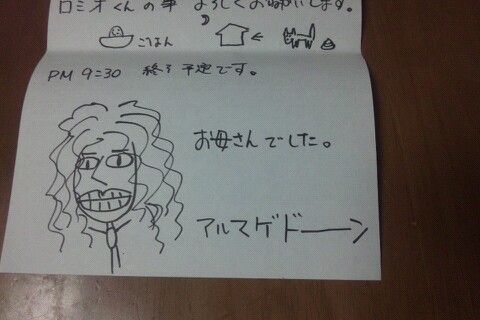 ロミオくんの事 よろしくお願いします。
ごはん
PM 9:30 終了予定です。
お母さんでした。
アルマゲドーーン